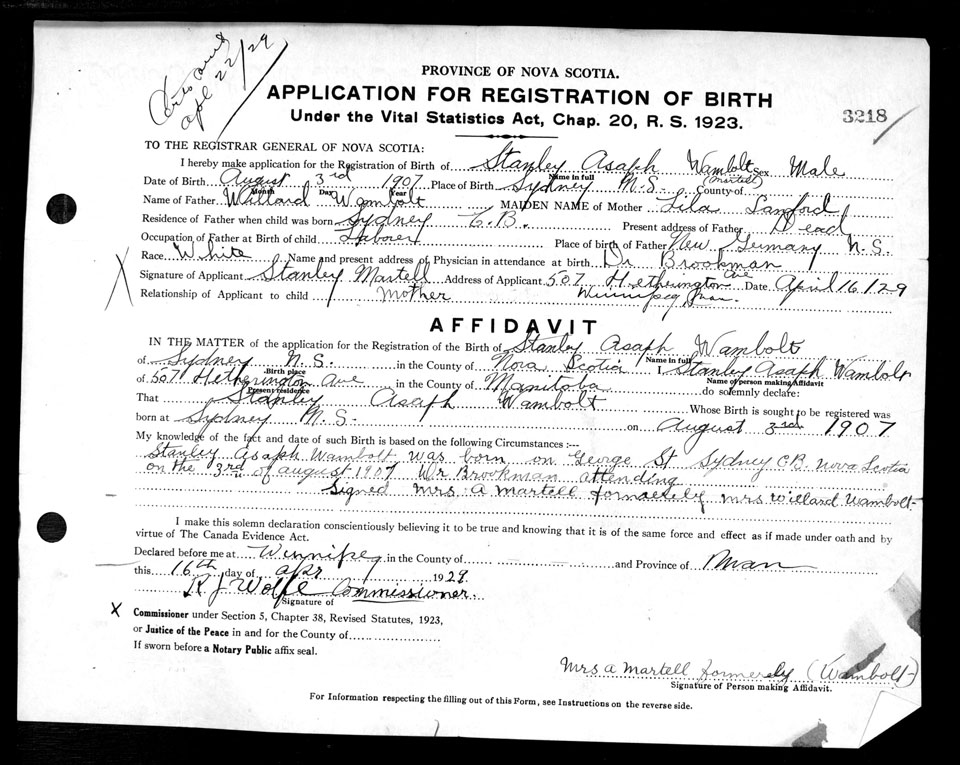 apl 22/29
PROVINCE OF NOVA SCOTIA.
APPLICATION FOR REGISTRATION OF BIRTH
3218
Under the Vital Statistics Act, Chap. 20, R. S. 1923.
TO THE REGISTRAR GENERAL OF NOVA SCOTIA:
I hereby make application for the Registration of Birth of Stanley Asaph Wambolt Sex Male
Name in full (Martell)
Date of Birth August 3rd 1907 Place of Birth Sydney N.S. County of
Month Day Year
Name of Father Willard Wambolt MAIDEN NAME of Mother Lila Sanford
Residence of Father when child was born Sydney C.B. Present address of Father Dead
Occupation of Father at Birth of child Laborer Place of birth of Father New Germany N.S.
Race White Name and present address of Physician in attendance at birth Dr Brookman
X Signature of Applicant Stanley Martell Address of Applicant 507 Hetherington Ave Date April 16/29
Relationship of Applicant to child Mother Winnipeg Man.
AFFIDAVIT
IN THE MATTER of the application for the Registration of the Birth of Stanley Asaph Wambolt
Name in full
of Sydney N.S. in the County of Nova Scotia I Stanley Asaph Wambolt
Birth place Name of person making Affidavit
of 507 Hetherington Ave in the County of Manitoba do solemnly declare:
Present residence
That Stanley Asaph Wambolt Whose Birth is sought to be registered was
born at Sydney N.S. on August 3rd 1907
My knowledge of the fact and date of such Birth is based on the following Circumstances :---
Stanley Asaph Wambolt was born on George St Sydney CB. Nova Scotia
on the 3rd of august 1907 Dr Brookman attending
Signed Mrs. A Martell formaerely Mrs. Willard Wambolt-
I make this solemn declaration conscientiously believing it to be true and knowing that it is of the same force and effect as if made under oath and by
virtue of The Canada Evidence Act.
Declared before me at Winnipeg in the County of and Province of Man
this 16th day of apr 1929.
R J Wolfe Commissioner.
Signature of
X Commissioner under Section 5, Chapter 38, Revised Statutes, 1923,
or Justice of the Peace in and for the County of
If sworn before a Notary Public affix seal.
Mrs a Martell formerely (Wambolt-)
Signature of Person making Affidavit.
For Information respecting the filling out of this Form, see Instructions on the reverse side.